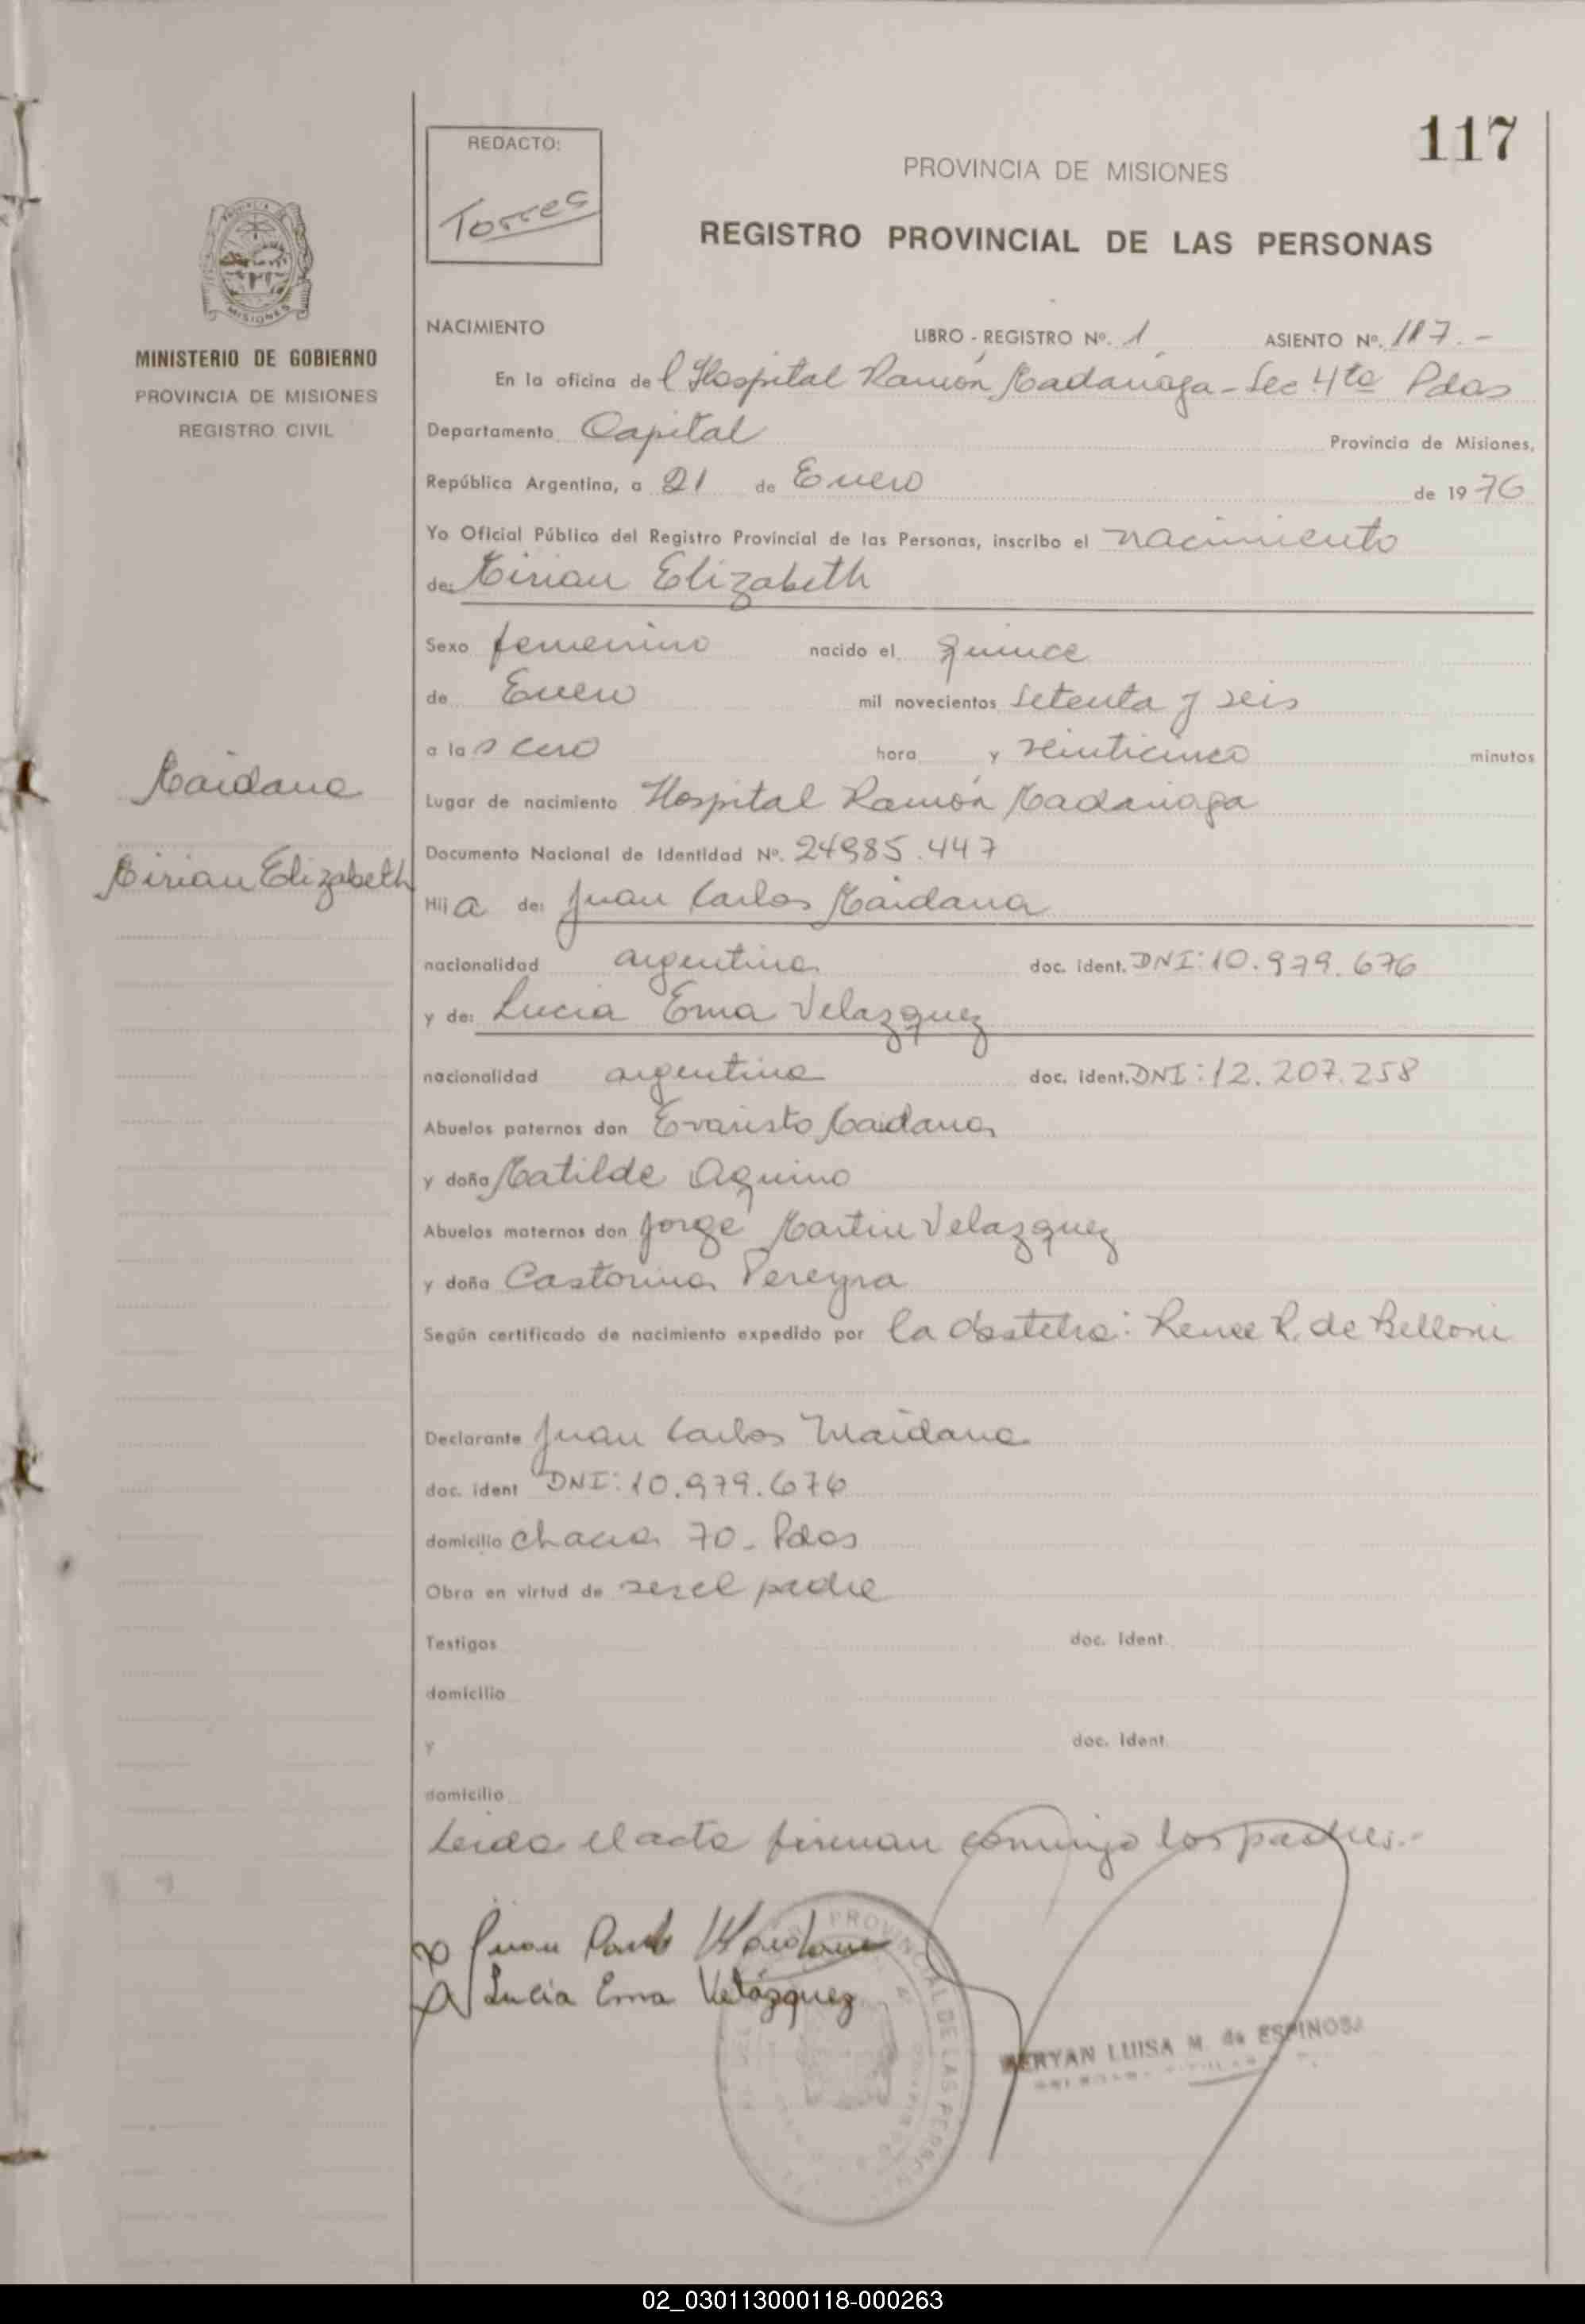 117
REDACTO:
Torres
PROVINCIA DE MISIONES
REGISTRO PROVINCIAL DE LAS PERSONAS
MISIONES
MINISTERIO DE GOBIERNO
PROVINCIA DE MISIONES
REGISTRO CIVIL
NACIMIENTO LIBRO - REGISTRO Nº. 1 ASIENTO Nº. 117.-
En la oficina del Hospital Ramón Madariaga - Sec 4ta Pdas
Departamento Capital Provincia de Misiones,
República Argentina, a 21 de Enero de 1976
Yo Oficial Público del Registro Provincial de las Personas, inscribo el nacimiento
de: Mirian Elizabeth
Sexo femenino nacido el quince
de Enero mil novecientos setenta y seis
a las cero hora y veinticinco minutos
Maidana
Lugar de nacimiento Hospital Ramón Madariaga
Mirian Elizabeth
Documento Nacional de Identidad Nº. 24985.447
Hija de: Juan Carlos Maidana
nacionalidad argentina doc. ident. DNI: 10.979.676
y de: Lucia Ema Velazquez
nacionalidad argentina doc. ident. DNI: 12.207.258
Abuelos paternos don Evaristo Maidana
y doña Matilde Aquino
Abuelos maternos don Jorge Martin Velazquez
y doña Castorina Pereyra
Según certificado de nacimiento expedido por la Obstetra: Renee R. de Belloni
Declarante Juan Carlos Maidana
doc. ident DNI: 10.979.676
domicilio chacra 70 - Pdas
Obra en virtud de ser el padre
Testigos doc. ident.
domicilio
y doc. ident.
domicilio
Leida el acta firman conmigo los padres.-
Juan Carlos Maidana
Lucia Ema Velázquez
PROVINCIAL DE LAS PERSONAS
MERYAN LUISA M. de ESPINOSA
02_030113000118-000263